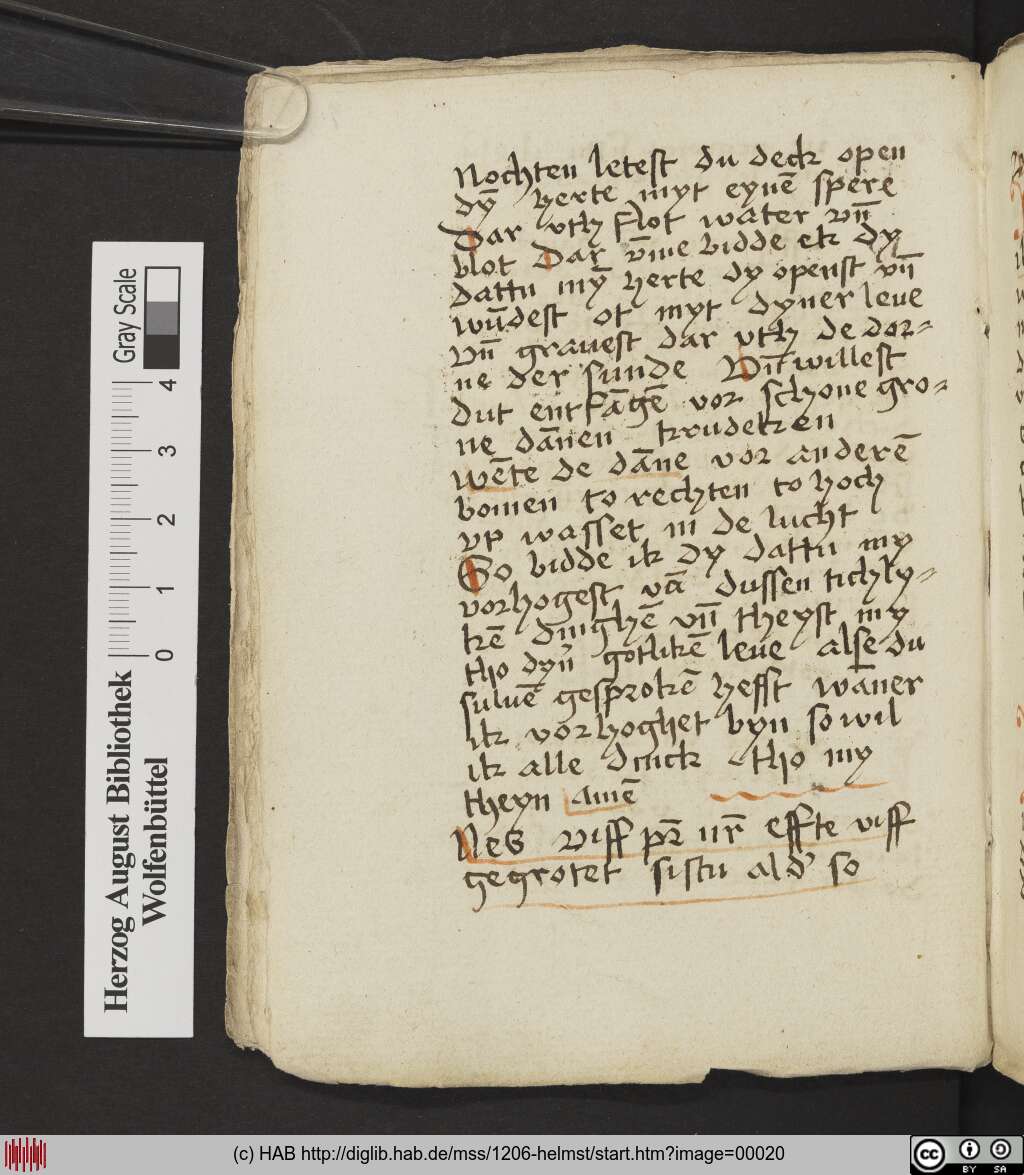 Nochten letest du deck open
dȳ herte myt eynē spere
Dar vth flot water vn̄
blot Dar v̄me bidde ek dy
dattu mȳ herte dy openst vn̄
wūdest ot myt dyner leue
vn̄ grauest dar vth de dor-
ne der sunde Vn̄ willest
dut entfāgē vor schone gro-
ne dānen krudeken
wēte de dāne vor anderē
bomen to rechten to hoch
vp wasset in de lucht
So bidde ik dy dattu my
vorhogest vā dussen tichly-
kē dinghē vn̄ theyst my
tho dyn̄ gotlikē leue alse du
suluē gesprokē hefft wāner
ik vorhoghet byn so wil
ik alle dinck tho my
theyn amē
viff pr̄ nr̄ effte viff
gegrotet sistu ald' so
Gray Scale
0 1 2 3 4
Herzog August Bibliothek
Wolfenbüttel
(c) HAB http://diglib.hab.de/mss/1206-helmst/start.htm?image=00020
cc BY SA